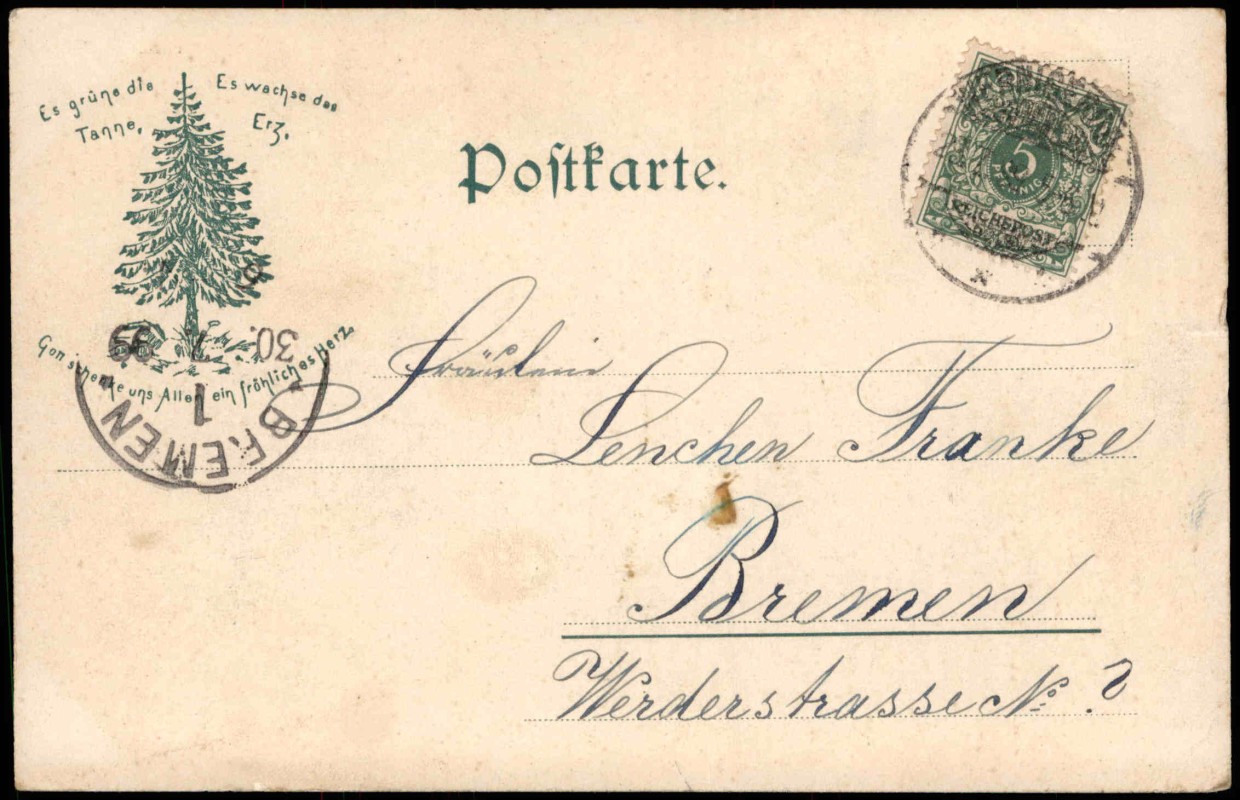 Es grüne die Tanne,
Es wachse das Erz,
Gott schenke uns Allen ein fröhliches Herz.
Postkarte.
5
PFENNIG
REICHSPOST
30. 7. 99
1
BREMEN
Fräulein
Lenchen Franke
Bremen
Werderstrasse No. ?